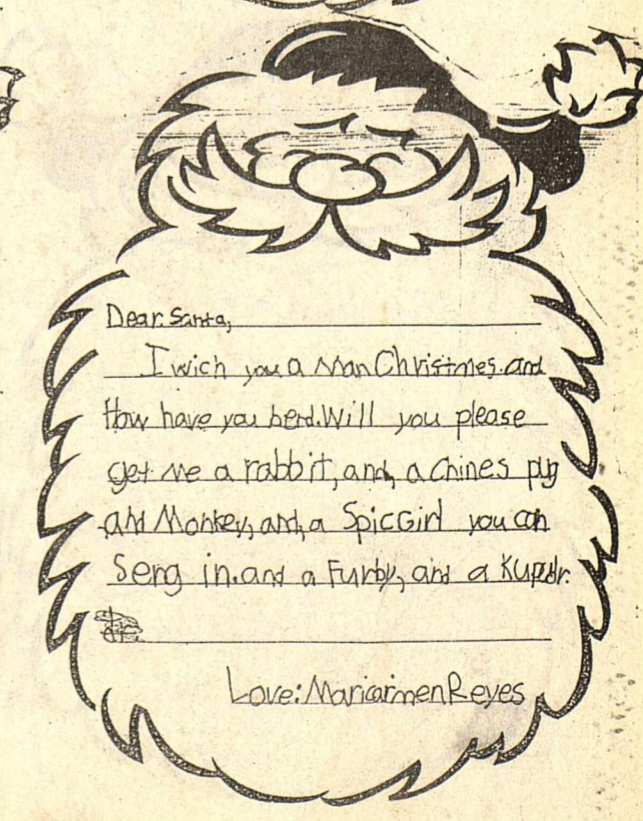 Dear Santa,
I wich you a Man Christmes. and
How have you berd. Will you please
get me a rabbit, and, a chines pug
and Monkey, and, a SpicGirl you can
Seng in. and a Furby, and a
Love: Maricarmen Reyes